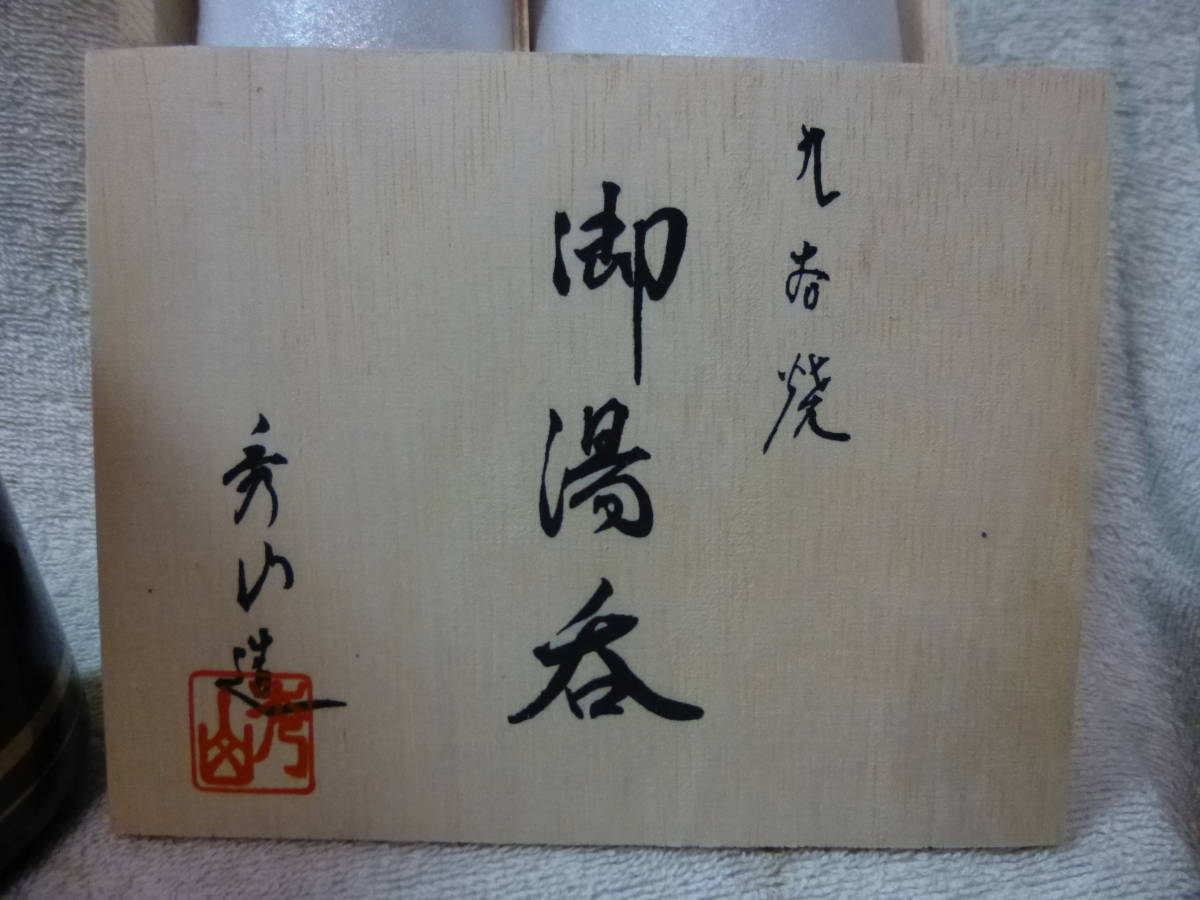 九谷焼
御湯呑
秀山造